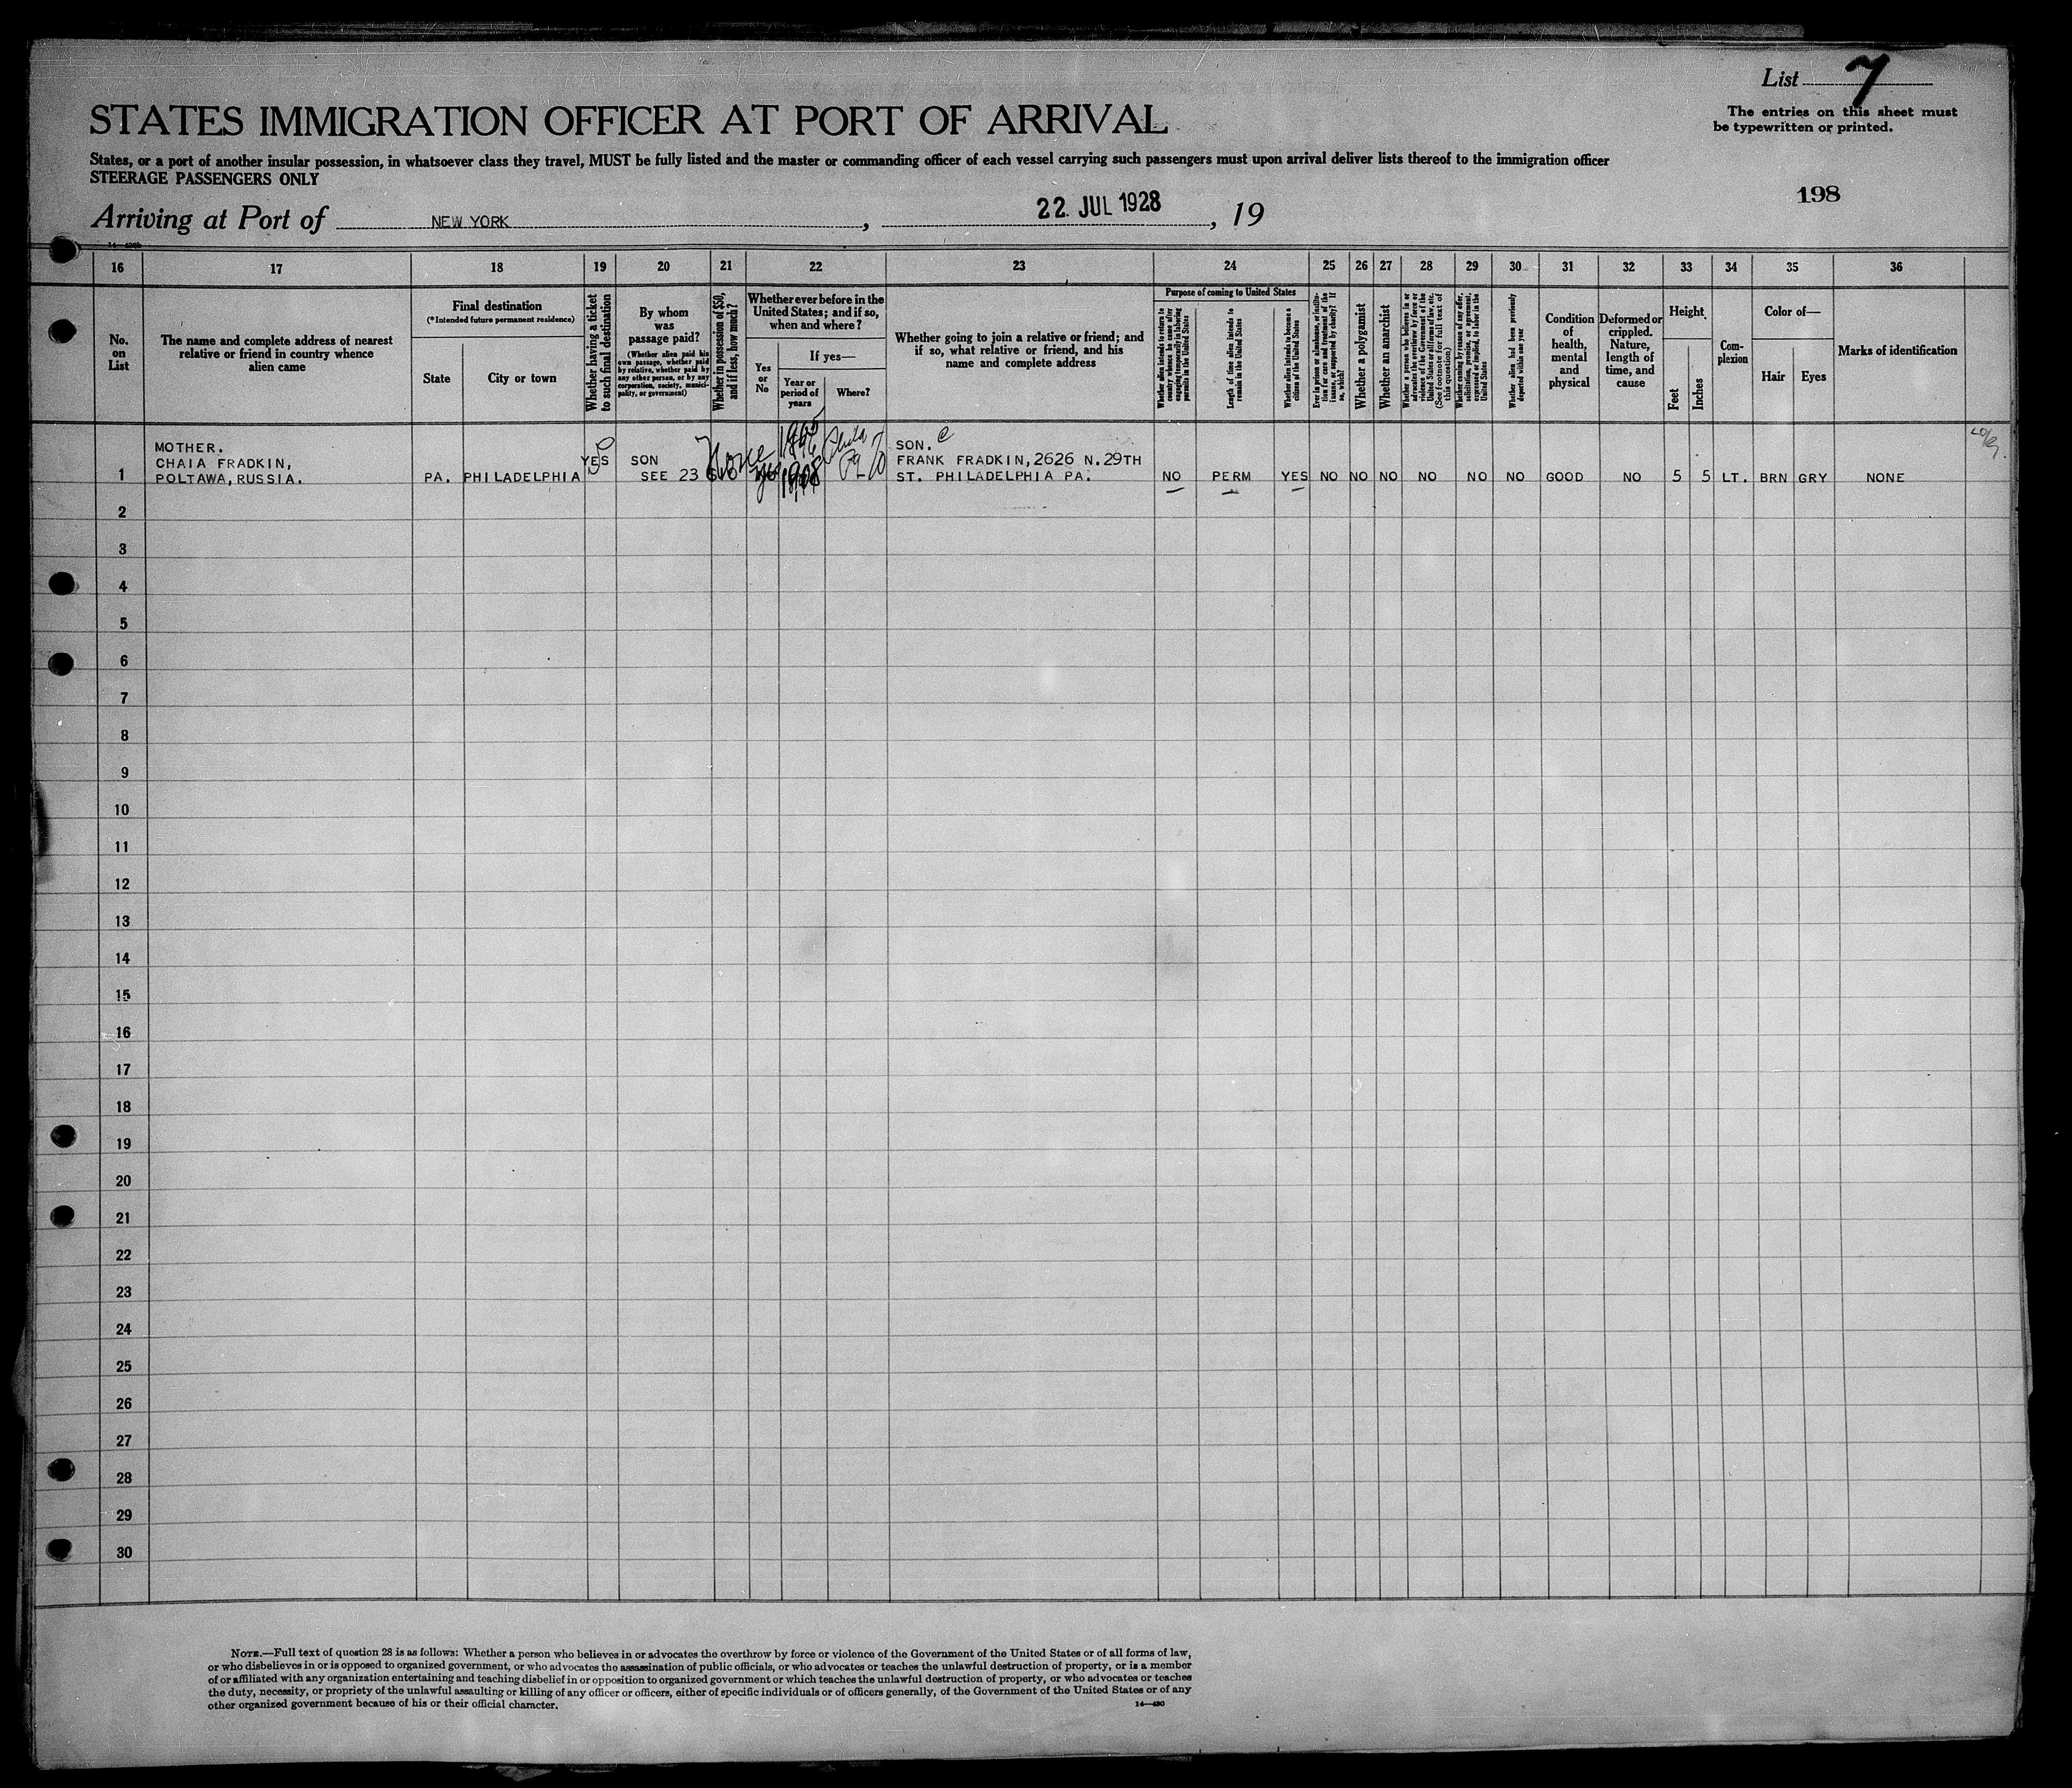 List 7
The entries on this sheet must
be typewritten or printed.
STATES IMMIGRATION OFFICER AT PORT OF ARRIVAL
States, or a port of another insular possession, in whatsoever class they travel, MUST be fully listed and the master or commanding officer of each vessel carrying such passengers must upon arrival deliver lists thereof to the immigration officer
STEERAGE PASSENGERS ONLY
198
Arriving at Port of NEW YORK, 22. JUL 1928, 19
16 17 18 19 20 21 22 23 24 25 26 27 28 29 30 31 32 33 34 35 36
No.
on
List
The name and complete address of nearest
relative or friend in country whence
alien came
Final destination
(*Intended future permanent residence)
State
City or town
Whether having a ticket
to such final destination
By whom
was
passage paid?
(Whether alien paid his
own passage, whether paid
by relative, whether paid by
any other person, or by any
corporation, society, munici-
pality, or government)
Whether in possession of $50,
and if less, how much?
Whether ever before in the
United States; and if so,
when and where?
Yes
or
No
If yes—
Year or
period of
years
Where?
Whether going to join a relative or friend; and
if so, what relative or friend, and his
name and complete address
Purpose of coming to United States
Whether alien intends to return to
country whence he came after
engaging temporarily in laboring
pursuits in the United States
Length of time alien intends to
remain in the United States
Whether alien intends to become a
citizen of the United States
Ever in prison or almshouse, or institu-
tion for care and treatment of the
insane, or supported by charity? If
so, which?
Whether a polygamist
Whether an anarchist
Whether a person who believes in or
advocates the overthrow by force or
violence of the Government of the
United States or all forms of law, etc.
(See footnote for full text of
this question)
Whether coming by reason of any offer,
solicitation, promise, or agreement,
expressed or implied, to labor in the
United States
Whether alien had been previously
deported within one year
Condition
of
health,
mental
and
physical
Deformed or
crippled.
Nature,
length of
time, and
cause
Height
Feet
Inches
Com-
plexion
Color of—
Hair
Eyes
Marks of identification
MOTHER.
CHAIA FRADKIN,
1 POLTAWA, RUSSIA.
PA. PHILADELPHIA
YES
SON
SEE 23
None
yes
1908
Phila
Pa
SON. C
FRANK FRADKIN, 2626 N. 29TH
ST. PHILADELPHIA PA.
NO PERM YES NO NO NO NO NO NO GOOD NO 5 5 LT. BRN GRY NONE
2
3
4
5
6
7
8
9
10
11
12
13
14
15
16
17
18
19
20
21
22
23
24
25
26
27
28
29
30
NOTE.—Full text of question 28 is as follows: Whether a person who believes in or advocates the overthrow by force or violence of the Government of the United States or of all forms of law,
or who disbelieves in or is opposed to organized government, or who advocates the assassination of public officials, or who advocates or teaches the unlawful destruction of property, or is a member
of or affiliated with any organization entertaining and teaching disbelief in or opposition to organized government or which teaches the unlawful destruction of property, or who advocates or teaches
the duty, necessity, or propriety of the unlawful assaulting or killing of any officer or officers, either of specific individuals or of officers generally, of the Government of the United States or of any
other organized government because of his or their official character.
14—430